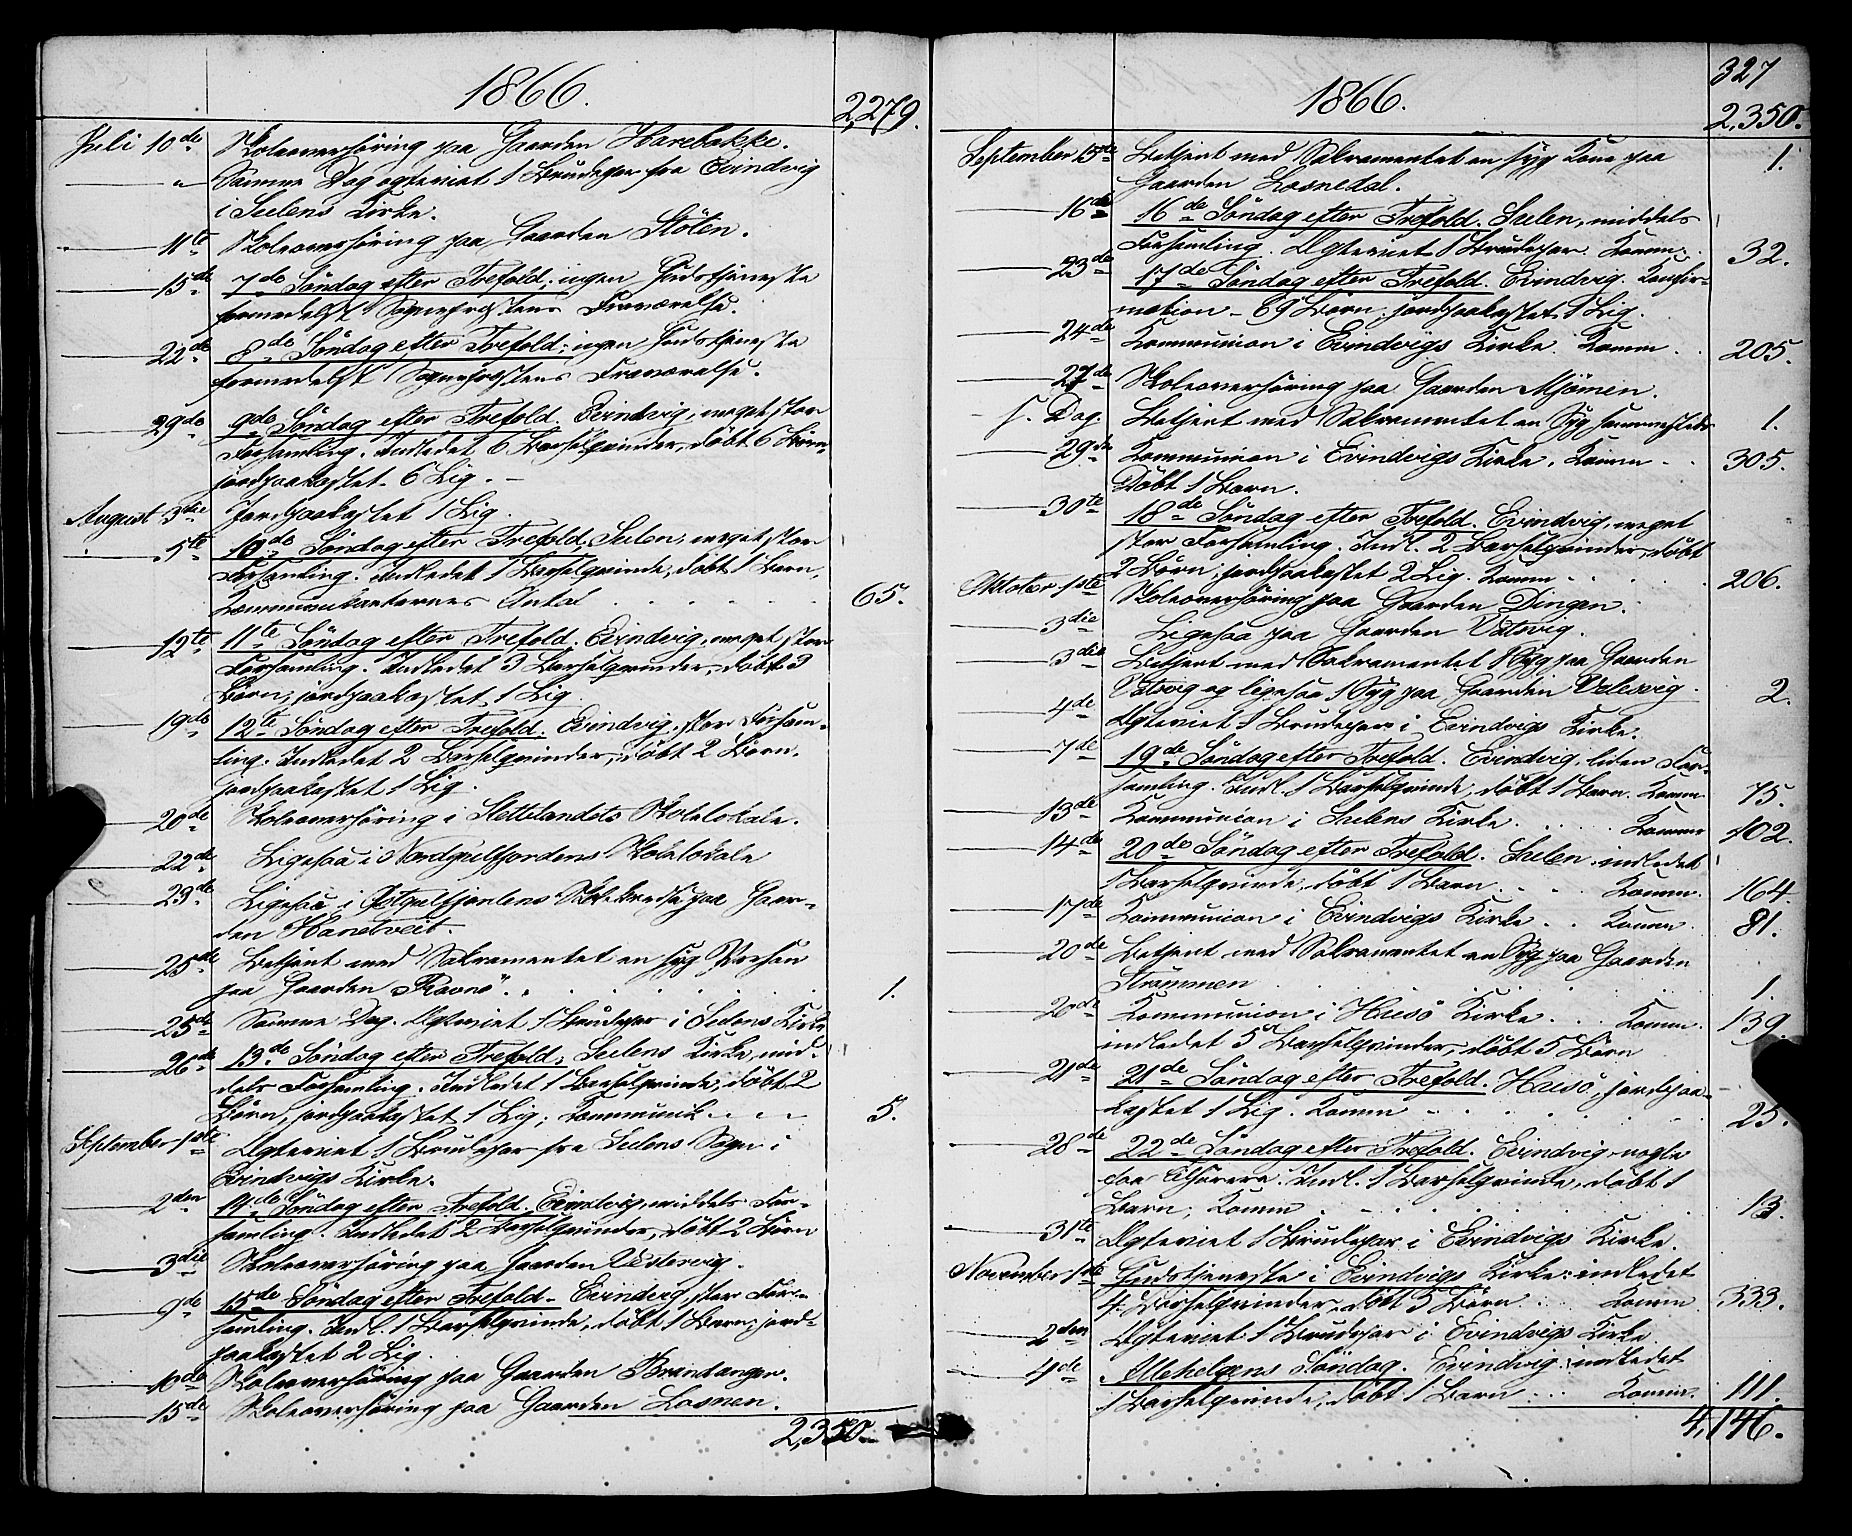 1866.
2,279.
Juli 10de Skoleoverhøring paa Gaarden Harebakke.
" Samme Dag egteviet 1 Brudepar fra Evindvig
i Sulens Kirke.
11te Skoleoverhøring paa Gaarden Stölen.
15de 7de Söndag efter Trefold: ingen Gudstjeneste
formedelst Sognepræstens Fraværelse.
22de 8de Söndag efter Trefold: ingen Gudstjeneste
formedelst Sognepræstens Fraværelse.
29de 9de Söndag efter Trefold. Evindvig, meget stor
Forsamling. Indledet 6 Barselqvinder, döbt 6 Börn,
jordpaakastet 6 Lig. –
August 3die Jordpaakastet 1 Lig.
5te 10de Söndag efter Trefold, Sulen, meget stor
Forsamling. Indledet 1 Barselqvinde, döbt 1 Barn,
Kommunikanternes Antal . . . . . 65.
12te 11te Söndag efter Trefold. Evindvig, meget stor
Forsamling. Indledet 3 Barselqvinder, döbt 3
Börn, jordpaakastet 1 Lig.
19de 12te Söndag efter Trefold. Evindvig, stor Forsam-
ling. Indledet 2 Barselqvinder, döbt 2 Börn.
jordpaakastet 1 Lig.
20de Skoleoverhøring i Slettelandets Skolelokale.
22de Ligesaa i Nordgulfjordens Skolelokale
23de Ligesaa i Skolekreds paa Gaar-
den
25de Betjent med Sakramentet en syg Person
paa Gaarden Ravnö. . . . . . 1.
25de Samme Dag. Egteviet 1 Brudepar i Sulens Kirke
26de 13de Söndag efter Trefold: Sulens Kirke, mid-
dels Forsamling. Indledet 1 Barselqvinde, döbt 2
Börn, jordpaakastet 1 Lig; Kommunik. . . . 5.
September 1ste Egteviet 1 Brudepar fra Sulens Sogn i
Evindvigs Kirke.
2den 14de Söndag efter Trefold. Evindvig, middels For-
samling. Indledet 2 Barselqvinder, döbt 2 Börn
3die Skoleoverhøring paa Gaarden
9de 15de Söndag efter Trefold. Evindvig, stor For-
samling. Indl. 1 Barselqvinde, döbt 1 Barn; jord-
paakastet 2 Lig.
10de Skoleoverhøring paa Gaarden Brandanger.
15de Skoleoverhøring paa Gaarden Losnen.
2,350.
327
1866.
2,350.
September 15de Betjent med Sakramentet en syg Kone paa 1.
Gaarden Losnedal.
16de 16de Söndag efter Trefold. Sulen, middels
Forsamling. Egteviet 1 Brudepar. Komm. 32.
23de 17de Söndag efter Trefold. Evindvig. Konfir-
mation – 69 Börn; jordpaakastet 1 Lig.
24de Kommunion i Evindvigs Kirke. Komm. . 205.
27de Skoleoverhøring paa Gaarden Mjömen.
s. Dag Betjent med Sakramentet en Syg sammesteds 1.
29de Kommunion i Evindvigs Kirke. Komm . . 305.
Döbt 1 Barn.
30te 18de Söndag efter Trefold. Evindvig, meget
stor Forsamling. Indl. 2 Barselqvinder, döbt
2 Börn, jordpaakastet 2 Lig. Komm . . . 206.
Oktober 1ste Skoleoverhøring paa Gaarden Dingen.
3die Ligesaa paa Gaarden
3die Betjent med Sakramentet 1 Syg paa Gaarden
og ligesaa 1 Syg paa Gaarden 2.
4de Egteviet 1 Brudepar i Evindvigs Kirke.
7de 19de Söndag efter Trefold. Evindvig, liden For-
samling. Indl. 1 Barselqvinde, döbt 1 Barn. Komm 75.
13de Kommunion i Sulens Kirke. . . . Komm 102.
14de 20de Söndag efter Trefold. Sulen, indledet
1 Barselqvinde, döbt 1 Barn . . . Komm. 164.
17de Kommunion i Evindvigs Kirke . . Komm. 81.
20de Betjent med Sakramentet en Syg paa Gaarden
Strömmen . . . . . 1.
20de Kommunion i Husö Kirke. . . Komm. 139.
indledet 5 Barselqvinder, döbt 5 Börn
21de 21de Söndag efter Trefold. Husö, jordpaa-
kastet 1 Lig. Komm . . . . . 25.
28de 22de Söndag efter Trefold. Evindvig, nogle
faa Tilhörere. Indl. 1 Barselqvinde, döbt 1
Barn; Komm . . . . . 13.
31te Egteviet 1 Brudepar i Evindvigs Kirke.
November 1ste Gudstjeneste i Evindvigs Kirke: indledet
4 Barselqvinder, döbt 5 Börn . . . Komm 333.
2den Egteviet 1 Brudepar i Evindvigs Kirke.
4de Allehelgens Söndag. Evindvig: indledet
1 Barselqvinde, döbt 1 Barn . . . Komm. 111.
4,146.